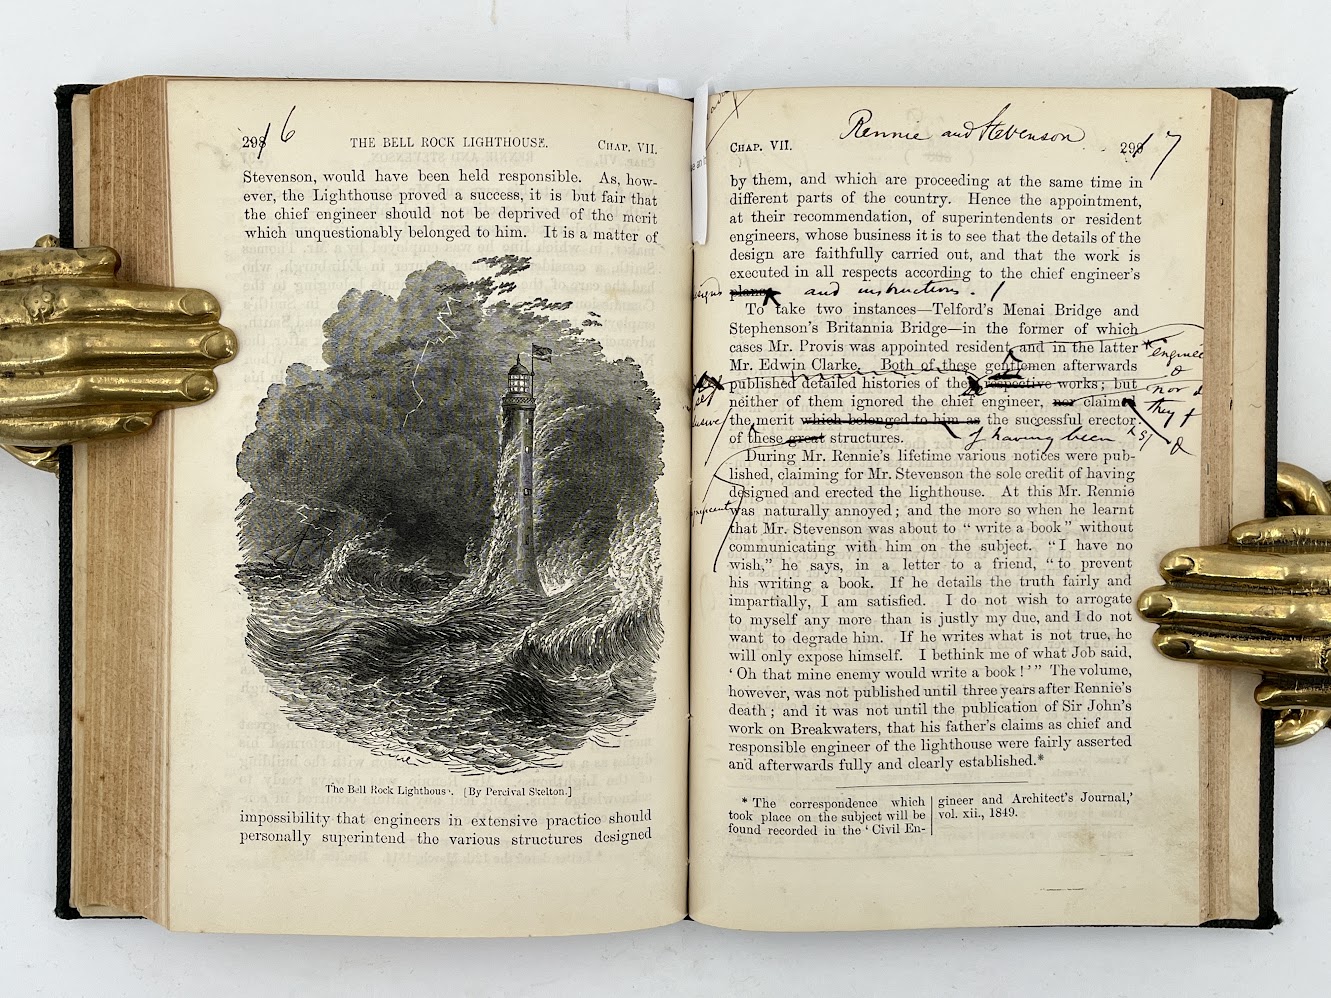 298 / 6
THE BELL ROCK LIGHTHOUSE.
CHAP. VII.
Stevenson, would have been held responsible. As, how-
ever, the Lighthouse proved a success, it is but fair that
the chief engineer should not be deprived of the merit
which unquestionably belonged to him. It is a matter of
The Bell Rock Lighthouse. [By Percival Skelton.]
impossibility that engineers in extensive practice should
personally superintend the various structures designed
CHAP. VII.
Rennie and Stevenson
299 / 7
by them, and which are proceeding at the same time in
different parts of the country. Hence the appointment,
at their recommendation, of superintendents or resident
engineers, whose business it is to see that the details of the
design are faithfully carried out, and that the work is
executed in all respects according to the chief engineer's
plans and instructions. /
To take two instances—Telford's Menai Bridge and
Stephenson's Britannia Bridge—in the former of which
cases Mr. Provis was appointed resident, and in the latter
engineer
Mr. Edwin Clarke. Both of these gentlemen afterwards
published detailed histories of the respective works; but
nor d
neither of them ignored the chief engineer, nor claimed
they
the merit which belonged to him as the successful erector
of these great structures. of having been
During Mr. Rennie's lifetime various notices were pub-
lished, claiming for Mr. Stevenson the sole credit of having
designed and erected the lighthouse. At this Mr. Rennie
was naturally annoyed; and the more so when he learnt
that Mr. Stevenson was about to "write a book" without
communicating with him on the subject. "I have no
wish," he says, in a letter to a friend, "to prevent
his writing a book. If he details the truth fairly and
impartially, I am satisfied. I do not wish to arrogate
to myself any more than is justly my due, and I do not
want to degrade him. If he writes what is not true, he
will only expose himself. I bethink me of what Job said,
'Oh that mine enemy would write a book!'" The volume,
however, was not published until three years after Rennie's
death; and it was not until the publication of Sir John's
work on Breakwaters, that his father's claims as chief and
responsible engineer of the lighthouse were fairly asserted
and afterwards fully and clearly established.*
* The correspondence which
took place on the subject will be
found recorded in the 'Civil En-
gineer and Architect's Journal,'
vol. xii., 1849.